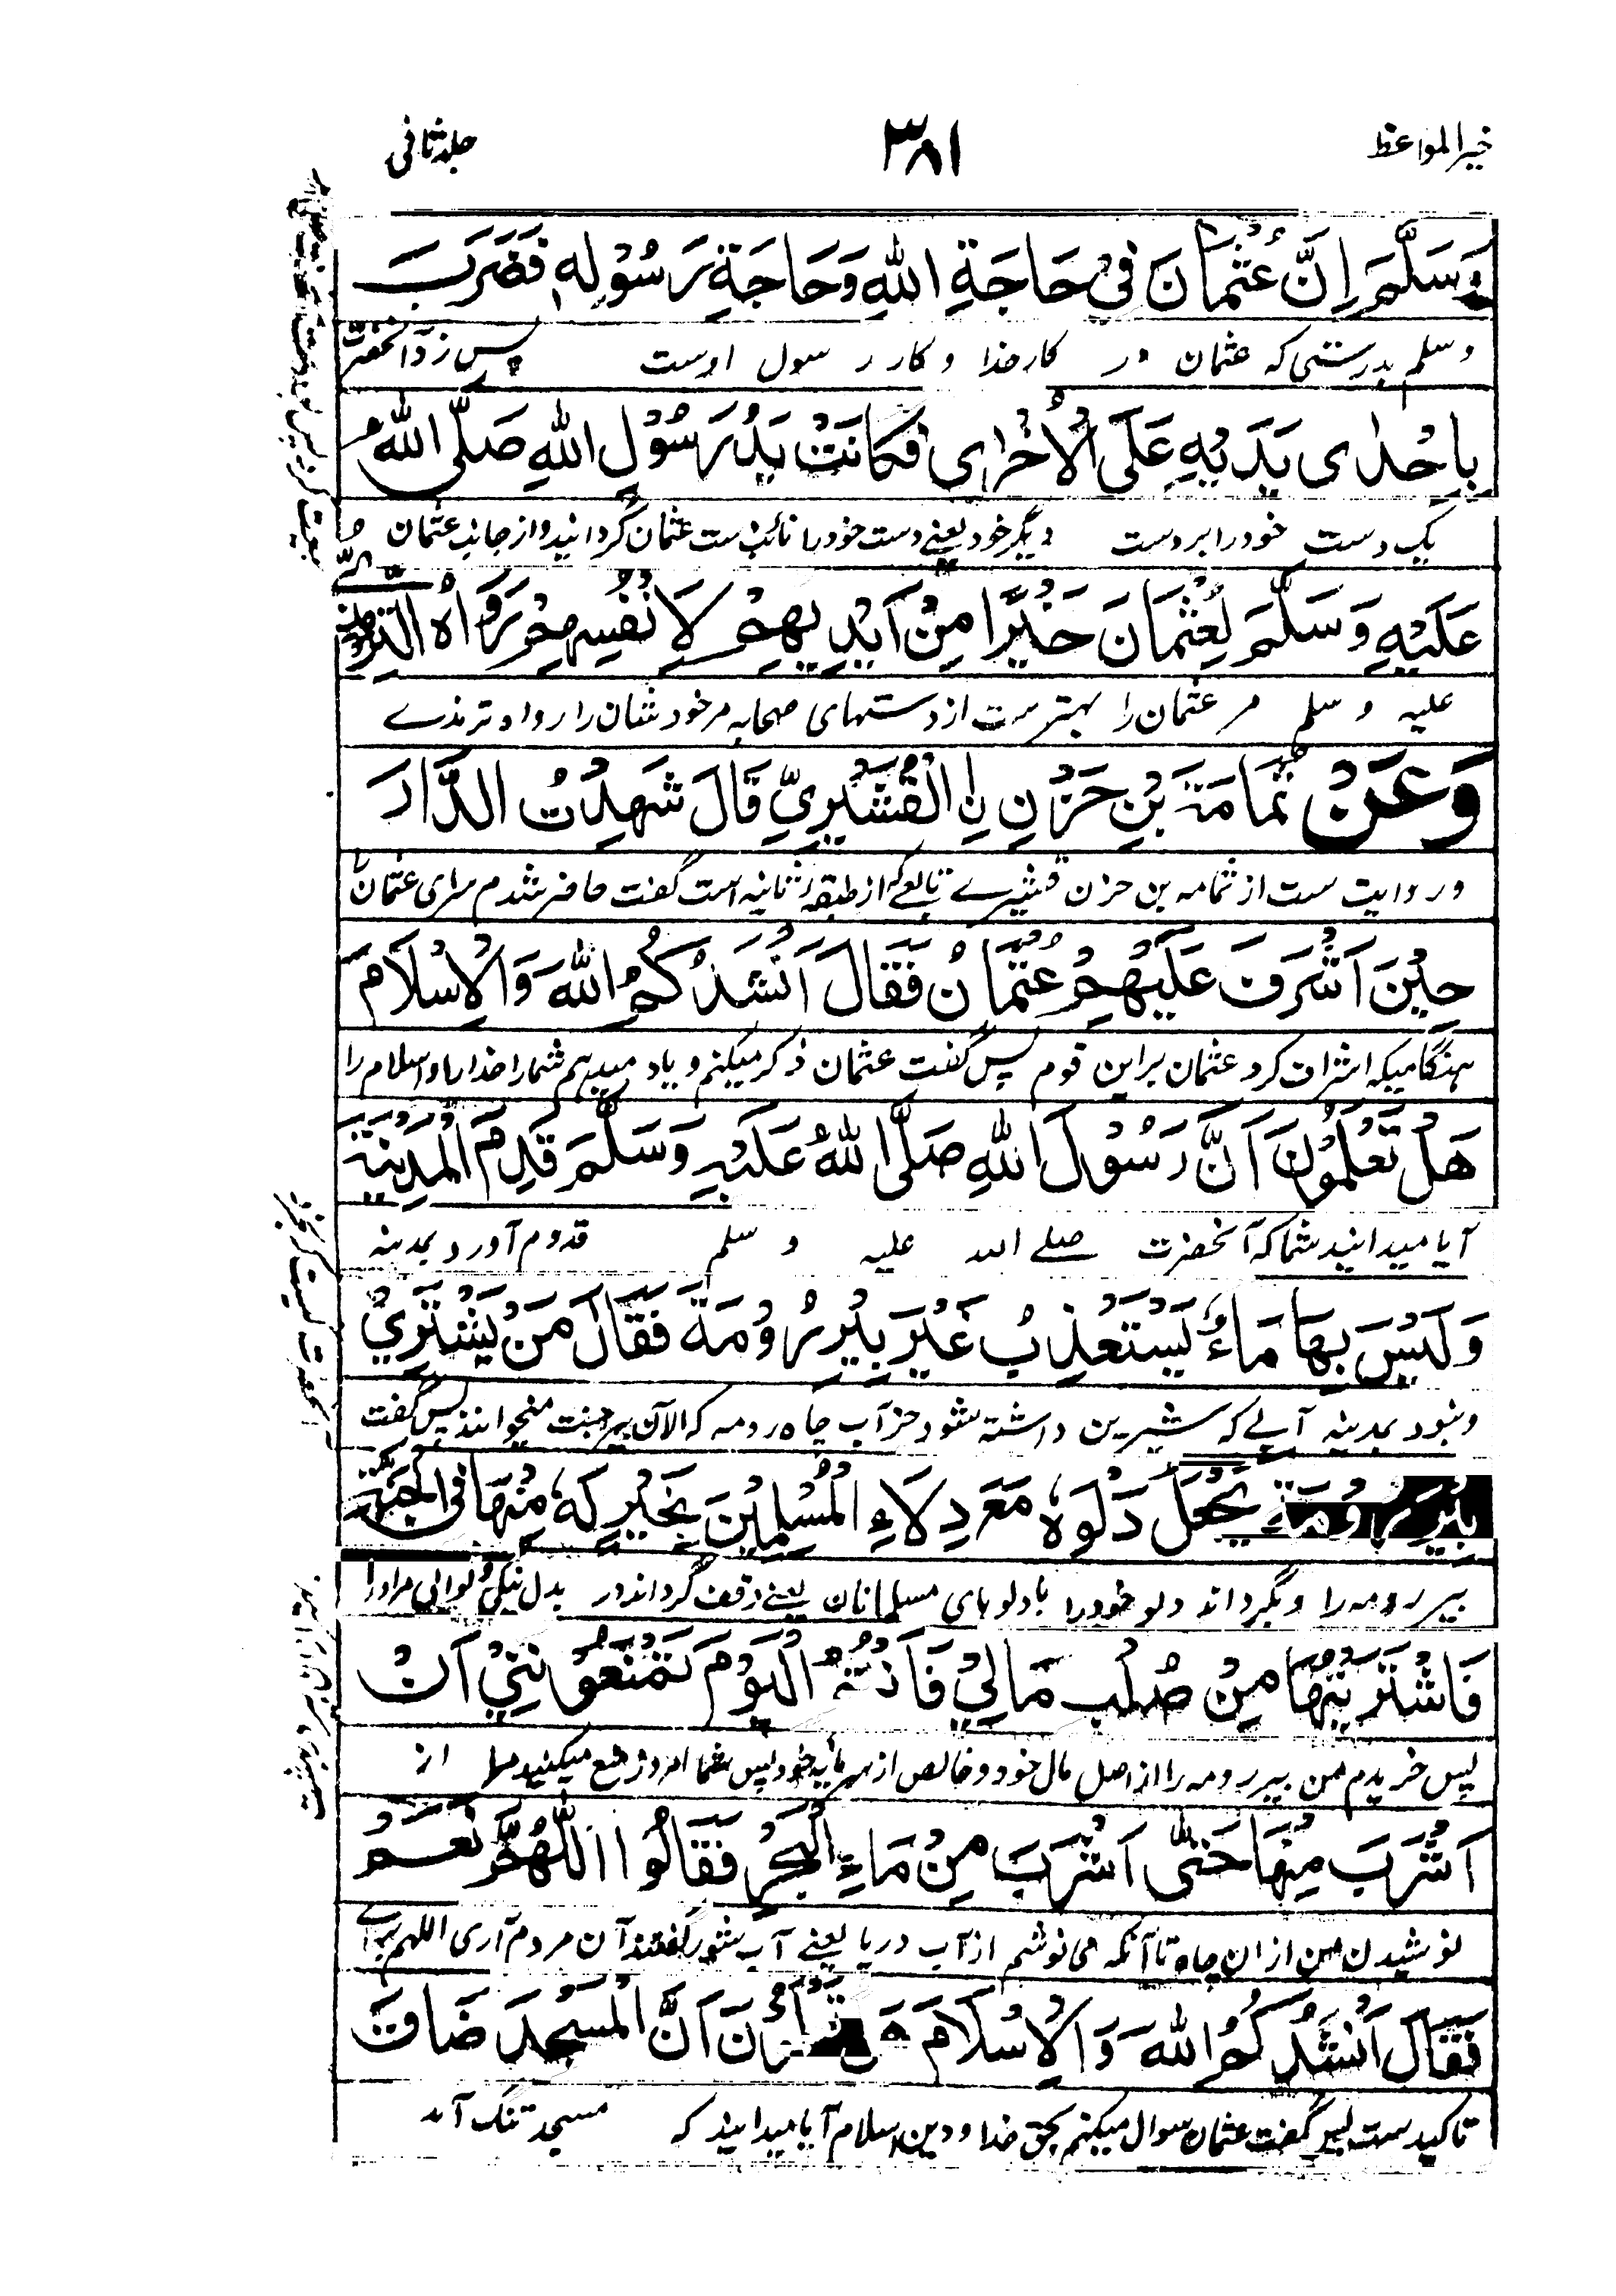 خیر المواعظ
۳۸۱
جلد ثانی
وَسَلَّمَ اِنَّ عُثْمَانَ فِيْ حَاجَةِ اللهِ وَحَاجَةِ رَسُوْلِهٖ فَضَرَبَ
وسلم بدرستی که عثمان در کار خدا و کار رسول اوست پس زد آنحضرت
بِاِحْدٰى يَدَيْهِ عَلَى الْاُخْرٰى فَكَانَتْ يَدُ رَسُوْلِ اللهِ صَلَّى اللهُ
یک دست خود را بر دست دیگر خود یعنے دست خود را نائب دست عثمان گردانید و از جانب عثمان
عَلَيْهِ وَسَلَّمَ لِعُثْمَانَ خَيْرًا مِنْ اَيْدِيْهِمْ لِاَنْفُسِهِمْ رَوَاهُ التِّرْمِذِيُّ
علیه و سلم مر عثمان را بهتر ست از دستهای صحابه مر خود شان را رواه ترمذے
وَعَنْ ثُمَامَةَ بْنِ حَزْنِ نِ الْقُشَيْرِيِّ قَالَ شَهِدْتُ الدَّارَ
و روایت ست از ثمامه بن حزن قشیرے تابعے که از طبقهٔ ثانیه است گفت حاضر شدم سرای عثمان را
حِيْنَ اَشْرَفَ عَلَيْهِمْ عُثْمَانُ فَقَالَ اَنْشُدُكُمُ اللهَ وَالْاِسْلَامَ
هنگامیکه اشراف کرد عثمان بر این قوم پس گفت عثمان ذکر میکنم و یاد میدهم شما را خدا را و اسلام را
هَلْ تَعْلَمُوْنَ اَنَّ رَسُوْلَ اللهِ صَلَّى اللهُ عَلَيْهِ وَسَلَّمَ قَدِمَ الْمَدِيْنَةَ
آیا میدانید شما که آنحضرت صلے الله علیه و سلم قدوم آورد بمدینه
وَلَيْسَ بِهَا مَاءٌ يُسْتَعْذَبُ غَيْرَ بِيْرِ رُوْمَةَ فَقَالَ مَنْ يَّشْتَرِيْ
و نبود بمدینه آبے که شیرین داشته شود جز آب چاه رومه که الآن بیر جنت میخوانند پس گفت
بِيْرَ رُوْمَةَ يَجْعَلُ دَلْوَهٗ مَعَ دِلَاءِ الْمُسْلِمِيْنَ بِخَيْرٍ لَهٗ مِنْهَا فِي الْجَنَّةِ
بیر رومه را و بگرداند دلو خود را با دلوهای مسلمانان یعنے وقف گرداند در بدل نیکی و ثوابی مر او را
فَاشْتَرَيْتُهَا مِنْ صُلْبِ مَالِيْ فَاَنْتُمُ الْيَوْمَ تَمْنَعُوْنَنِيْ اَنْ
پس خریدم من بیر رومه را از اصل مال خود و خالص از سرمایه خود پس شما امروز منع میکنید مرا از
اَشْرَبَ مِنْهَا حَتّٰى اَشْرَبَ مِنْ مَاءِ الْبَحْرِ فَقَالُوْا اللّٰهُمَّ نَعَمْ
نوشیدن من از ان چاه تا آنکه می نوشم از آب دریا یعنے آب شور گفتند آن مردم آری اللهم براے
فَقَالَ اَنْشُدُكُمُ اللهَ وَالْاِسْلَامَ اَنَّ الْمَسْجِدَ ضَاقَ
تاکید ست پس گفت عثمان سوال میکنم بحق خدا و دین اسلام آیا میدانید که مسجد تنگ آمد